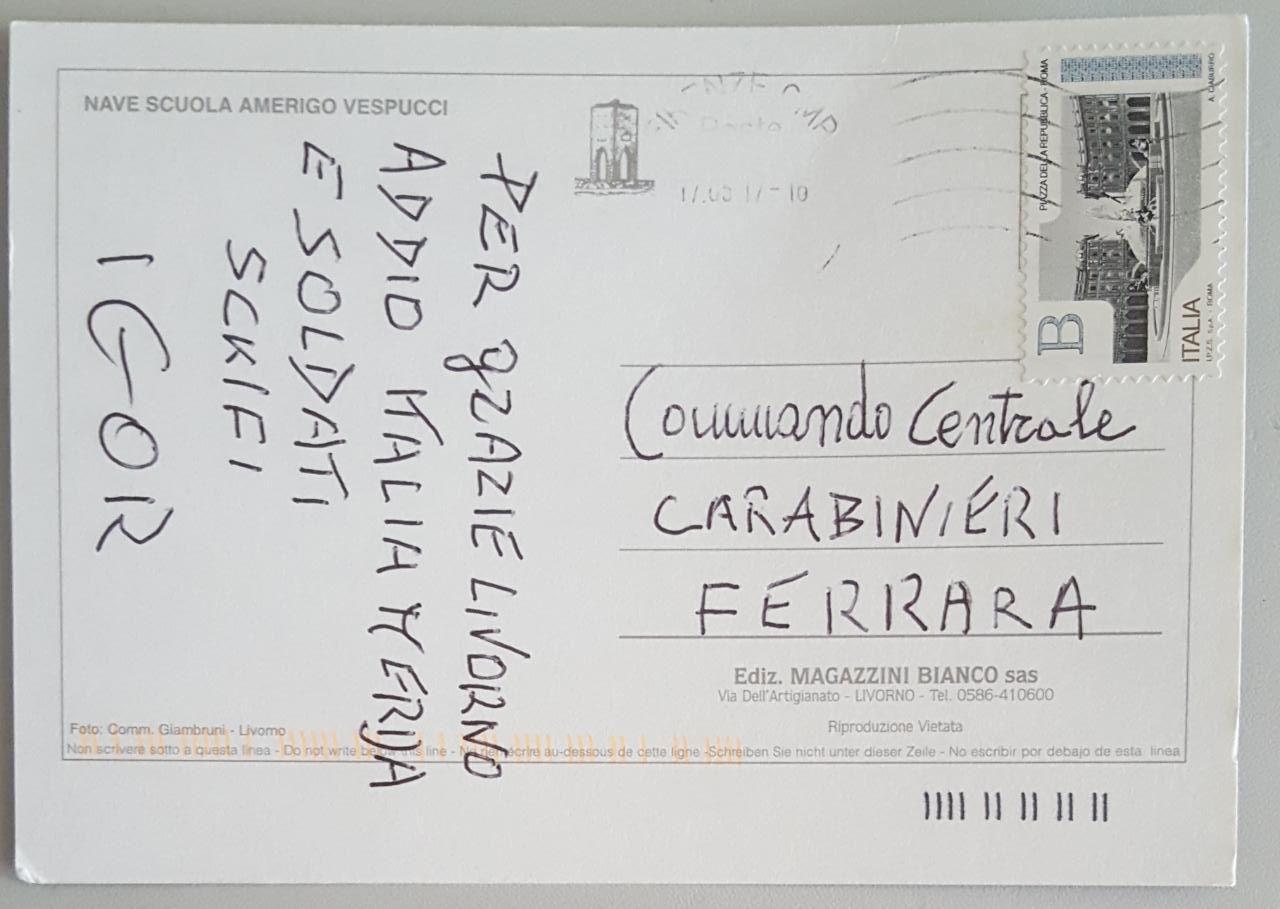 NAVE SCUOLA AMERIGO VESPUCCI
PER gZAZIE LIVORNO
ADDIO ITALIA MERDA
E SOLDATI
SCKIFI
IGOR
PIAZZA DELLA REPUBBLICA - ROMA
A. CIABURRO
B
ITALIA
I.P.Z.S. S.p.A. - ROMA
Commando Centrale
CARABINIERI
FERRARA
Ediz. MAGAZZINI BIANCO sas
Via Dell'Artigianato - LIVORNO - Tel. 0586-410600
Riproduzione Vietata
Foto: Comm. Giambruni - Livorno
Non scrivere sotto a questa linea - Do not write below this line - Ne pas écrire au-dessous de cette ligne -Schreiben Sie nicht unter dieser Zeile - No escribir por debajo de esta linea